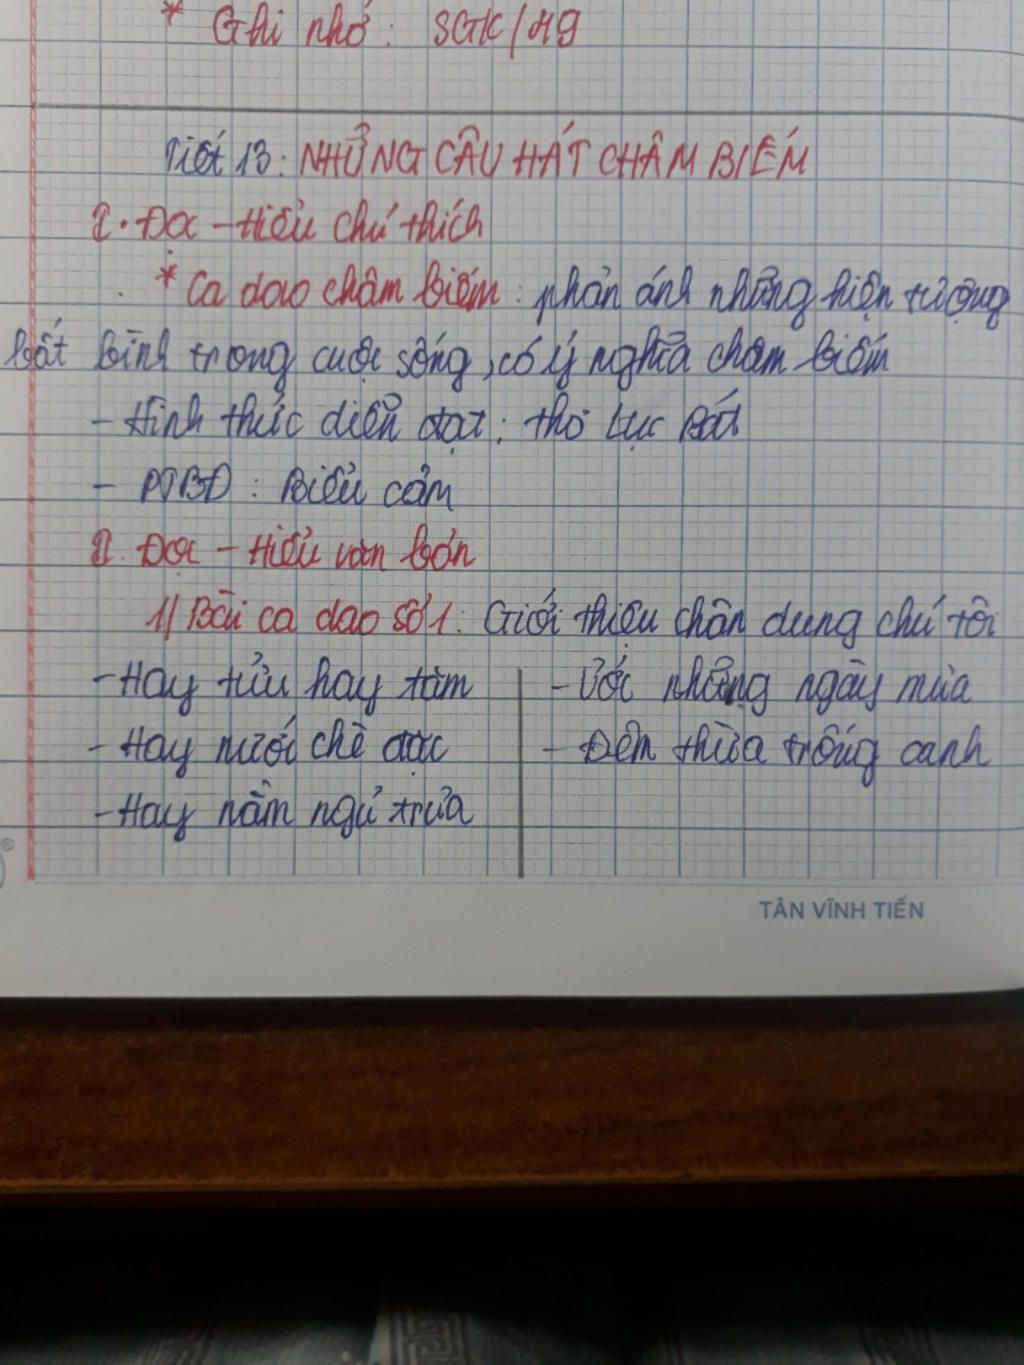 * Ghi nhớ: SGK/49
Tiết 13: NHỮNG CÂU HÁT CHÂM BIẾM
I. Đọc - Hiểu chú thích
* Ca dao châm biếm: phản ánh những hiện tượng
bất bình trong cuộc sống, có ý nghĩa châm biếm
- Hình thức diễn đạt: thơ Lục Bát
- PTBĐ: Biểu cảm
II. Đọc - Hiểu văn bản
1/ Bài ca dao số 1: Giới thiệu chân dung chú tôi
- Hay tửu hay tăm - Ước những ngày mưa
- Hay nước chè đặc - Đêm thừa trống canh
- Hay nằm ngủ trưa
TÂN VĨNH TIẾN